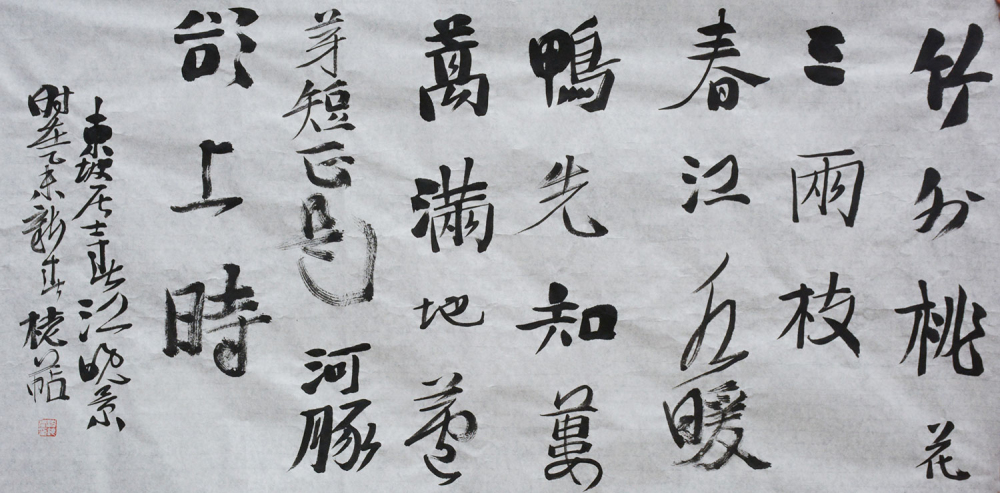 竹外桃花
三兩枝
春江水暖
鴨先知蔞
蒿滿地蘆
芽短正是河豚
欲上時
東坡居士春江晚景
时在乙未新春